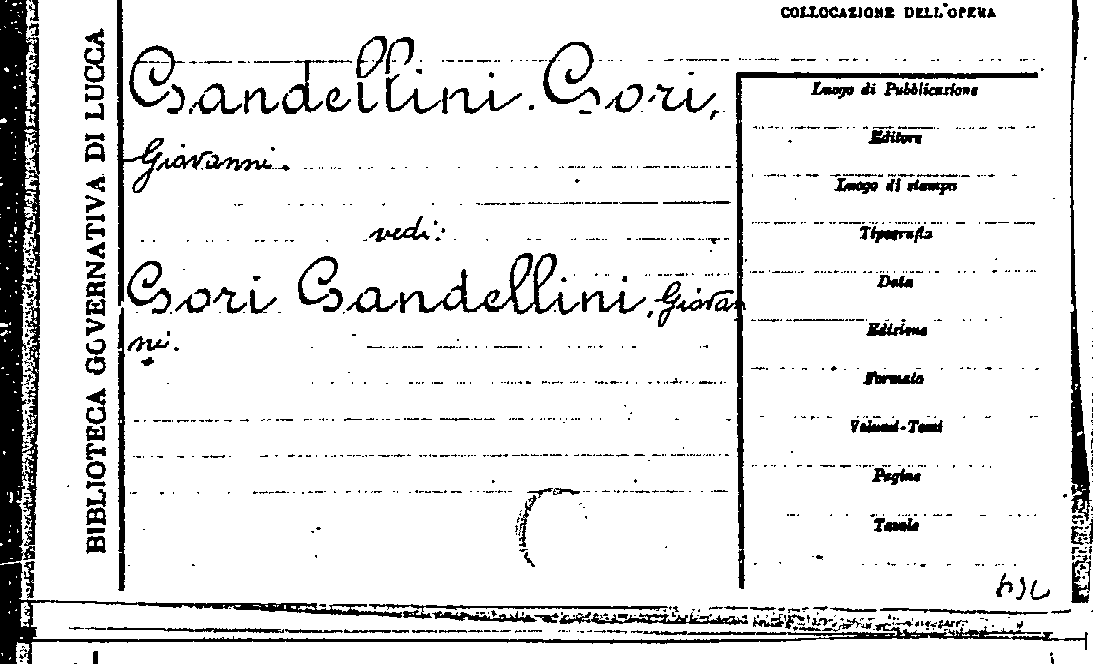 COLLOCAZIONE DELL'OPERA
BIBLIOTECA GOVERNATIVA DI LUCCA
Gandellini. Gori,
Giovanni.
vedi:
Gori Gandellini, Giovan
ni.
Luogo di Pubblicazione
Editore
Luogo di stampa
Tipografia
Data
Edizione
Formato
Volumi-Tomi
Pagine
Tavole